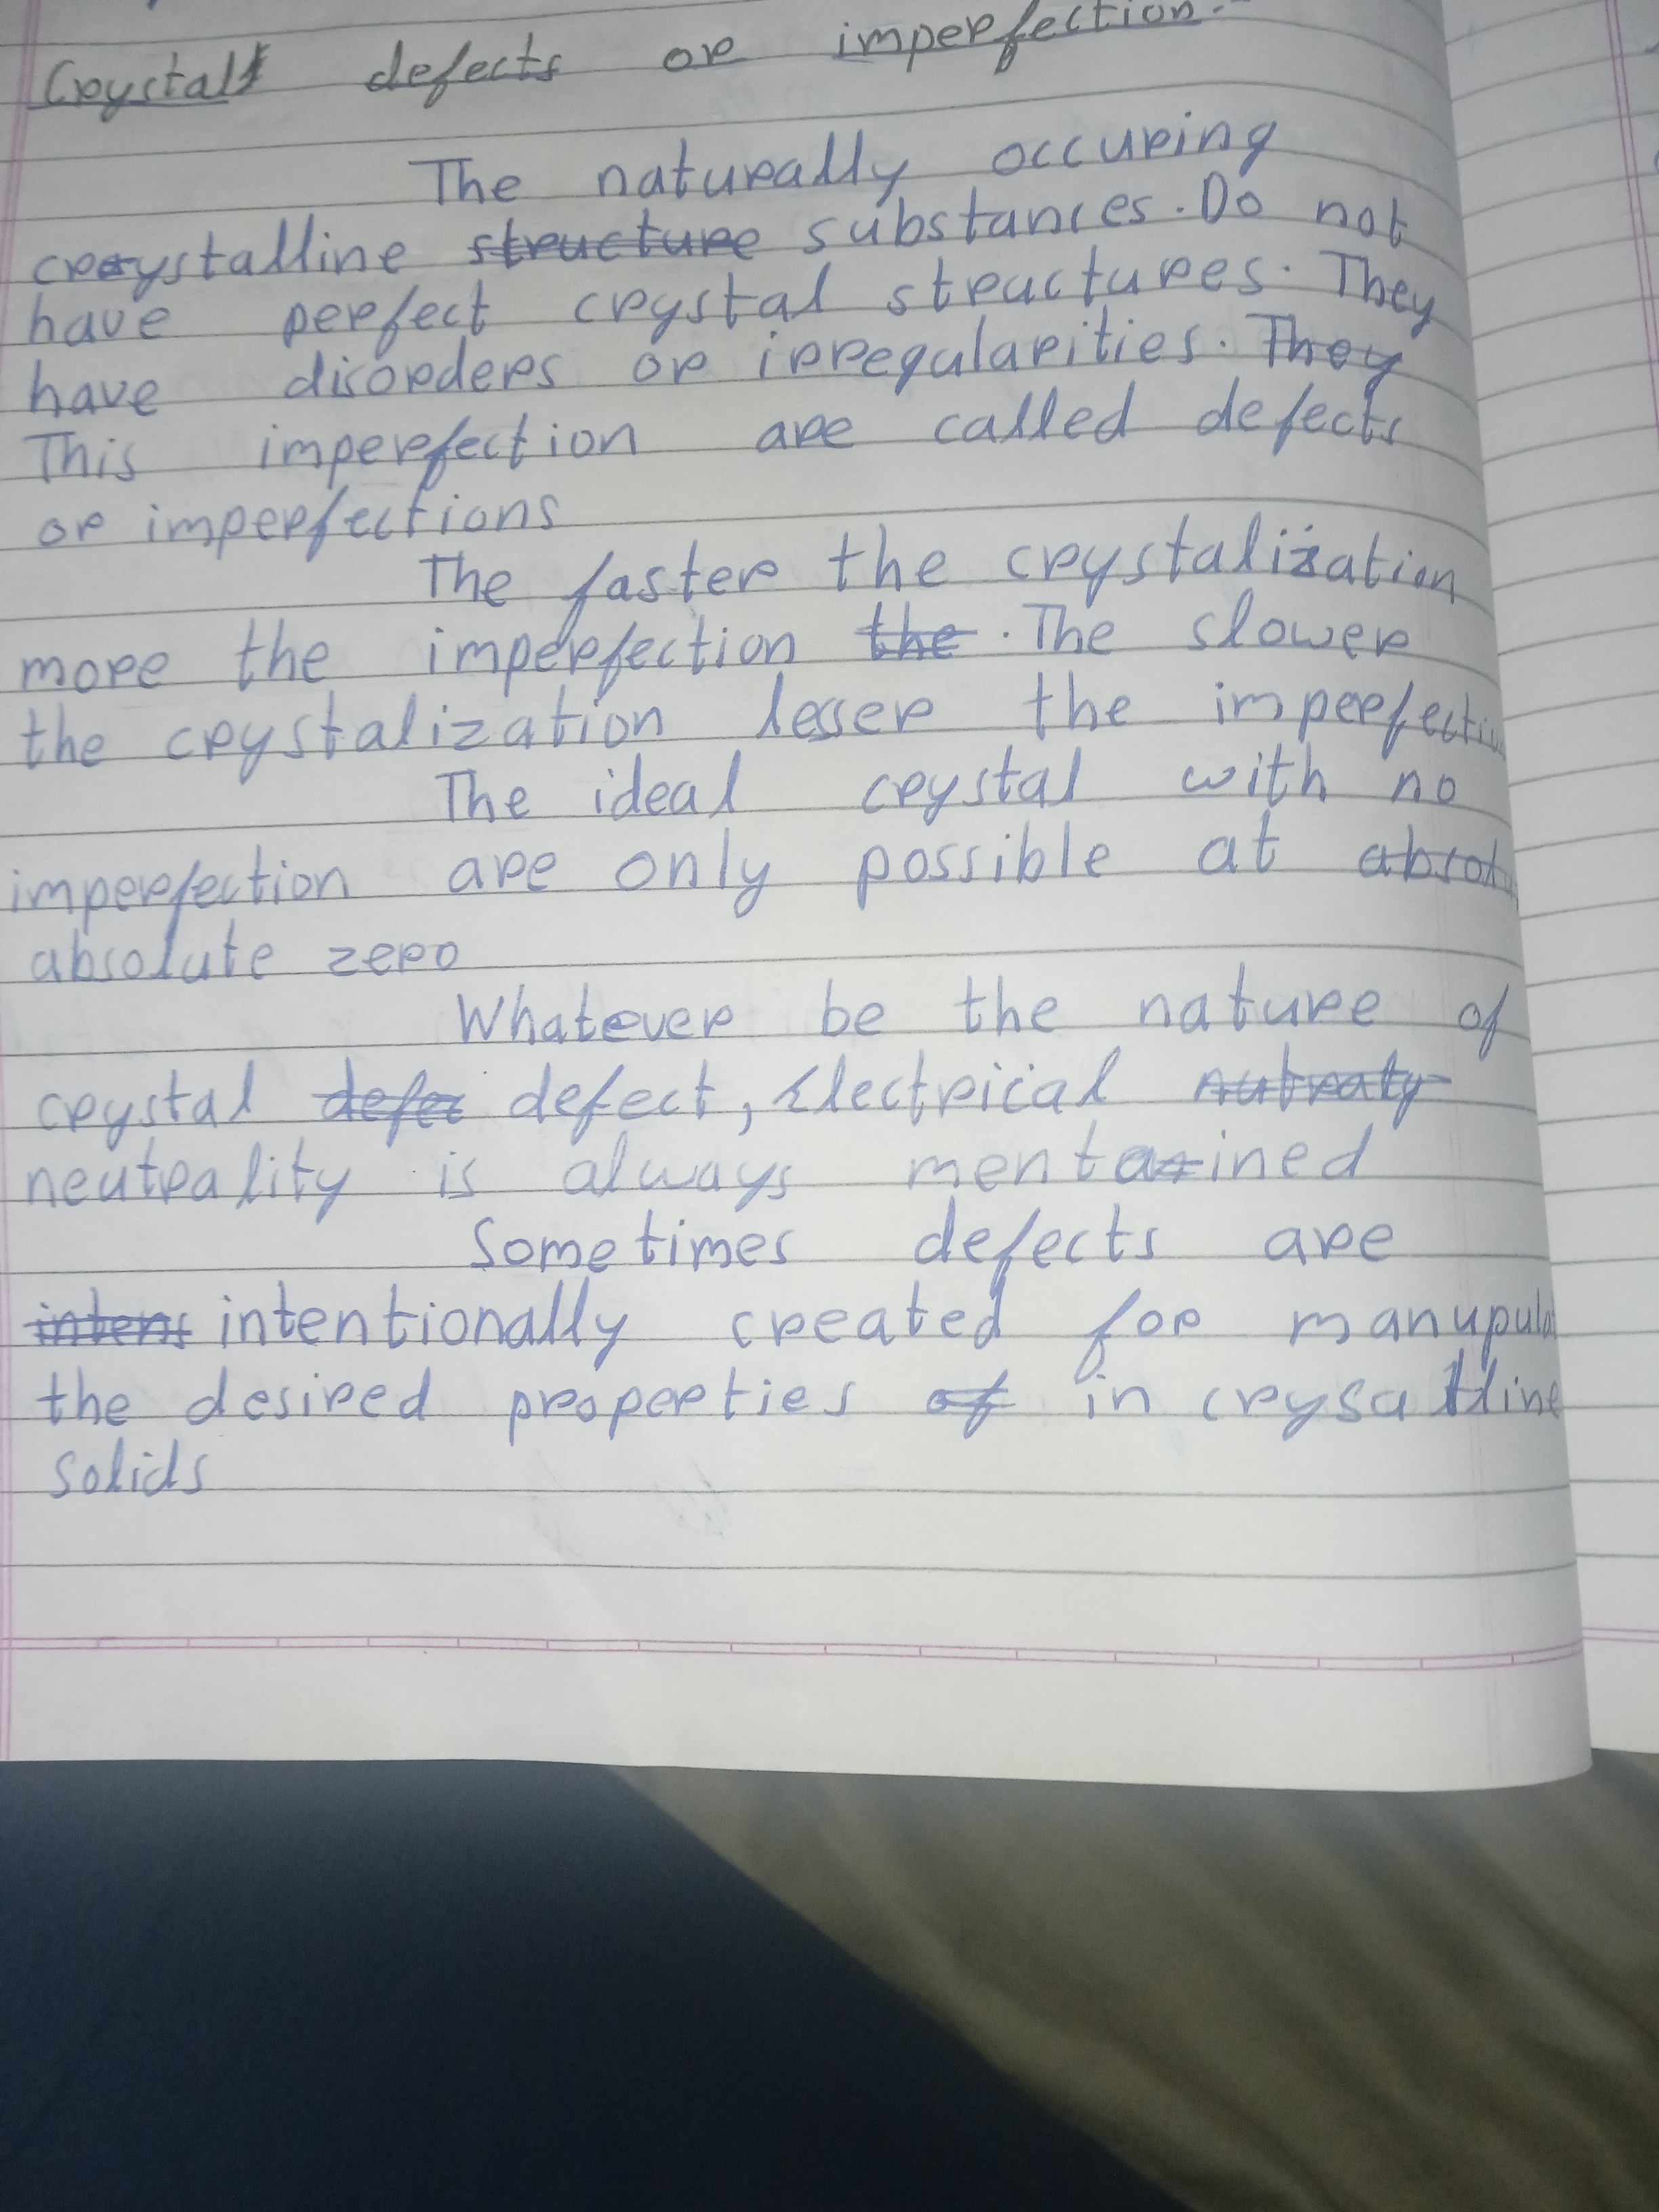 Crystal defects or imperfection.-
The naturally occuring
crystalline structure substances. Do not
have perfect crystal structures. They
have disorders or irregularities. They
This imperfection are called defects
or imperfections
The faster the crystalization
more the imperfection the . The slower
the crystalization lesser the imperfection
The ideal crystal with no
imperfection are only possible at absolu
absolute zero
Whatever be the nature of
crystal defec defect, Electrical nutraty
neutrality is always mentained
Sometimes defects are
intens intentionally created for manupulat
the desired properties of in crysatlline
solids